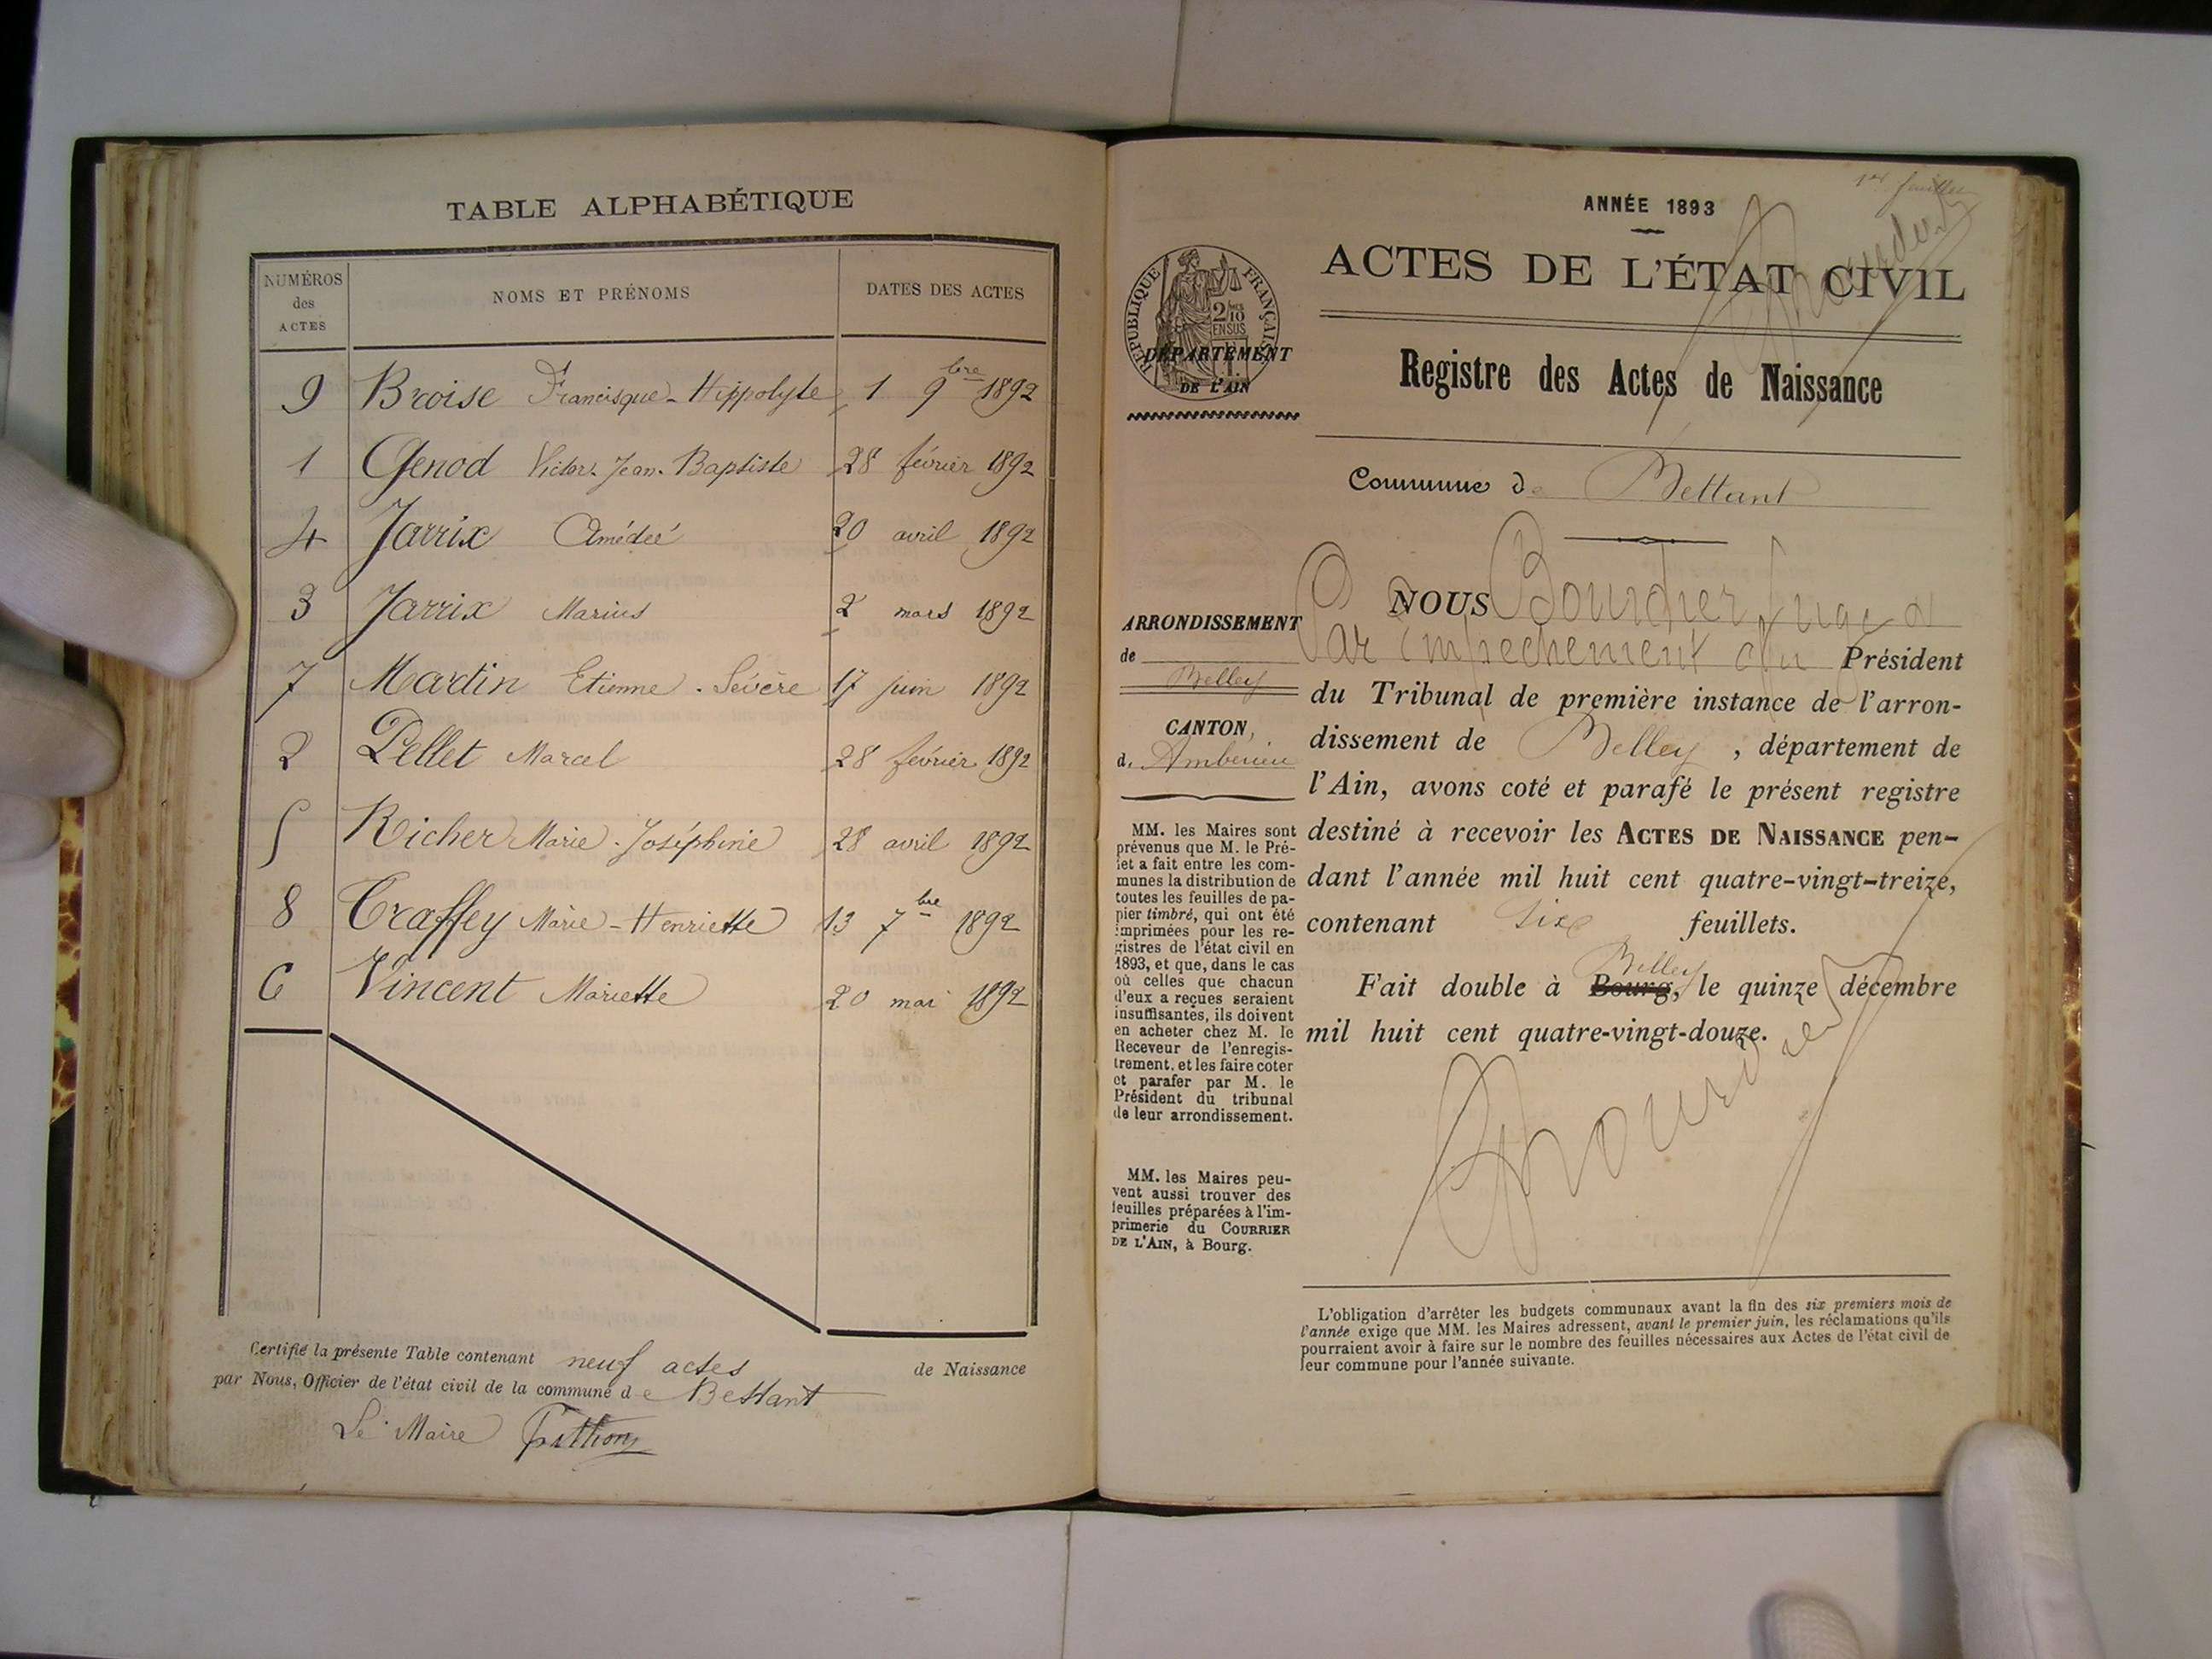 TABLE ALPHABÉTIQUE
NUMÉROS
des
ACTES
NOMS ET PRÉNOMS
DATES DES ACTES
9 Broise Francisque-Hippolyte 1 9bre 1892
1 Genod Victor-Jean-Baptiste 28 février 1892
4 Jarrix Amédeé 20 avril 1892
3 Jarrix Marius 2 mars 1892
7 Martin Etienne-Sévère 17 juin 1892
2 Pellet Marcel 28 février 1892
5 Richer Marie-Joséphine 28 avril 1892
8 Traffey Marie-Henriette 13 7bre 1892
6 Vincent Mariette 20 mai 1892
Certifié la présente Table contenant neuf actes de Naissance
par Nous, Officier de l'état civil de la commune de Bettant
Le Maire
ANNÉE 1893
1er feuillet
ACTES DE L'ÉTAT CIVIL
RÉPUBLIQUE FRANÇAISE
2/10
EN SUS
DÉPARTEMENT
DE L'AIN
Registre des Actes de Naissance
Commune de Bettant
ARRONDISSEMENT
de
Belley
CANTON
d. Ambérieu
MM. les Maires sont
prévenus que M. le Pré-
fet a fait entre les com-
munes la distribution de
toutes les feuilles de pa-
pier timbré, qui ont été
imprimées pour les re-
gistres de l'état civil en
1893, et que, dans le cas
où celles que chacun
d'eux a reçues seraient
insuffisantes, ils doivent
en acheter chez M. le
Receveur de l'enregis-
trement, et les faire coter
et parafer par M. le
Président du tribunal
de leur arrondissement.
MM. les Maires peu-
vent aussi trouver des
feuilles préparées à l'im-
primerie du COURRIER
DE L'AIN, à Bourg.
NOUS Bourdier juge
Par empechement du Président
du Tribunal de première instance de l'arron-
dissement de Belley, département de
l'Ain, avons coté et parafé le présent registre
destiné à recevoir les ACTES DE NAISSANCE pen-
dant l'année mil huit cent quatre-vingt-treize,
contenant six feuillets.
Belley
Fait double à Bourg, le quinze décembre
mil huit cent quatre-vingt-douze.
Bourdier
L'obligation d'arrêter les budgets communaux avant la fin des six premiers mois de
l'année exige que MM. les Maires adressent, avant le premier juin, les réclamations qu'ils
pourraient avoir à faire sur le nombre des feuilles nécessaires aux Actes de l'état civil de
leur commune pour l'année suivante.